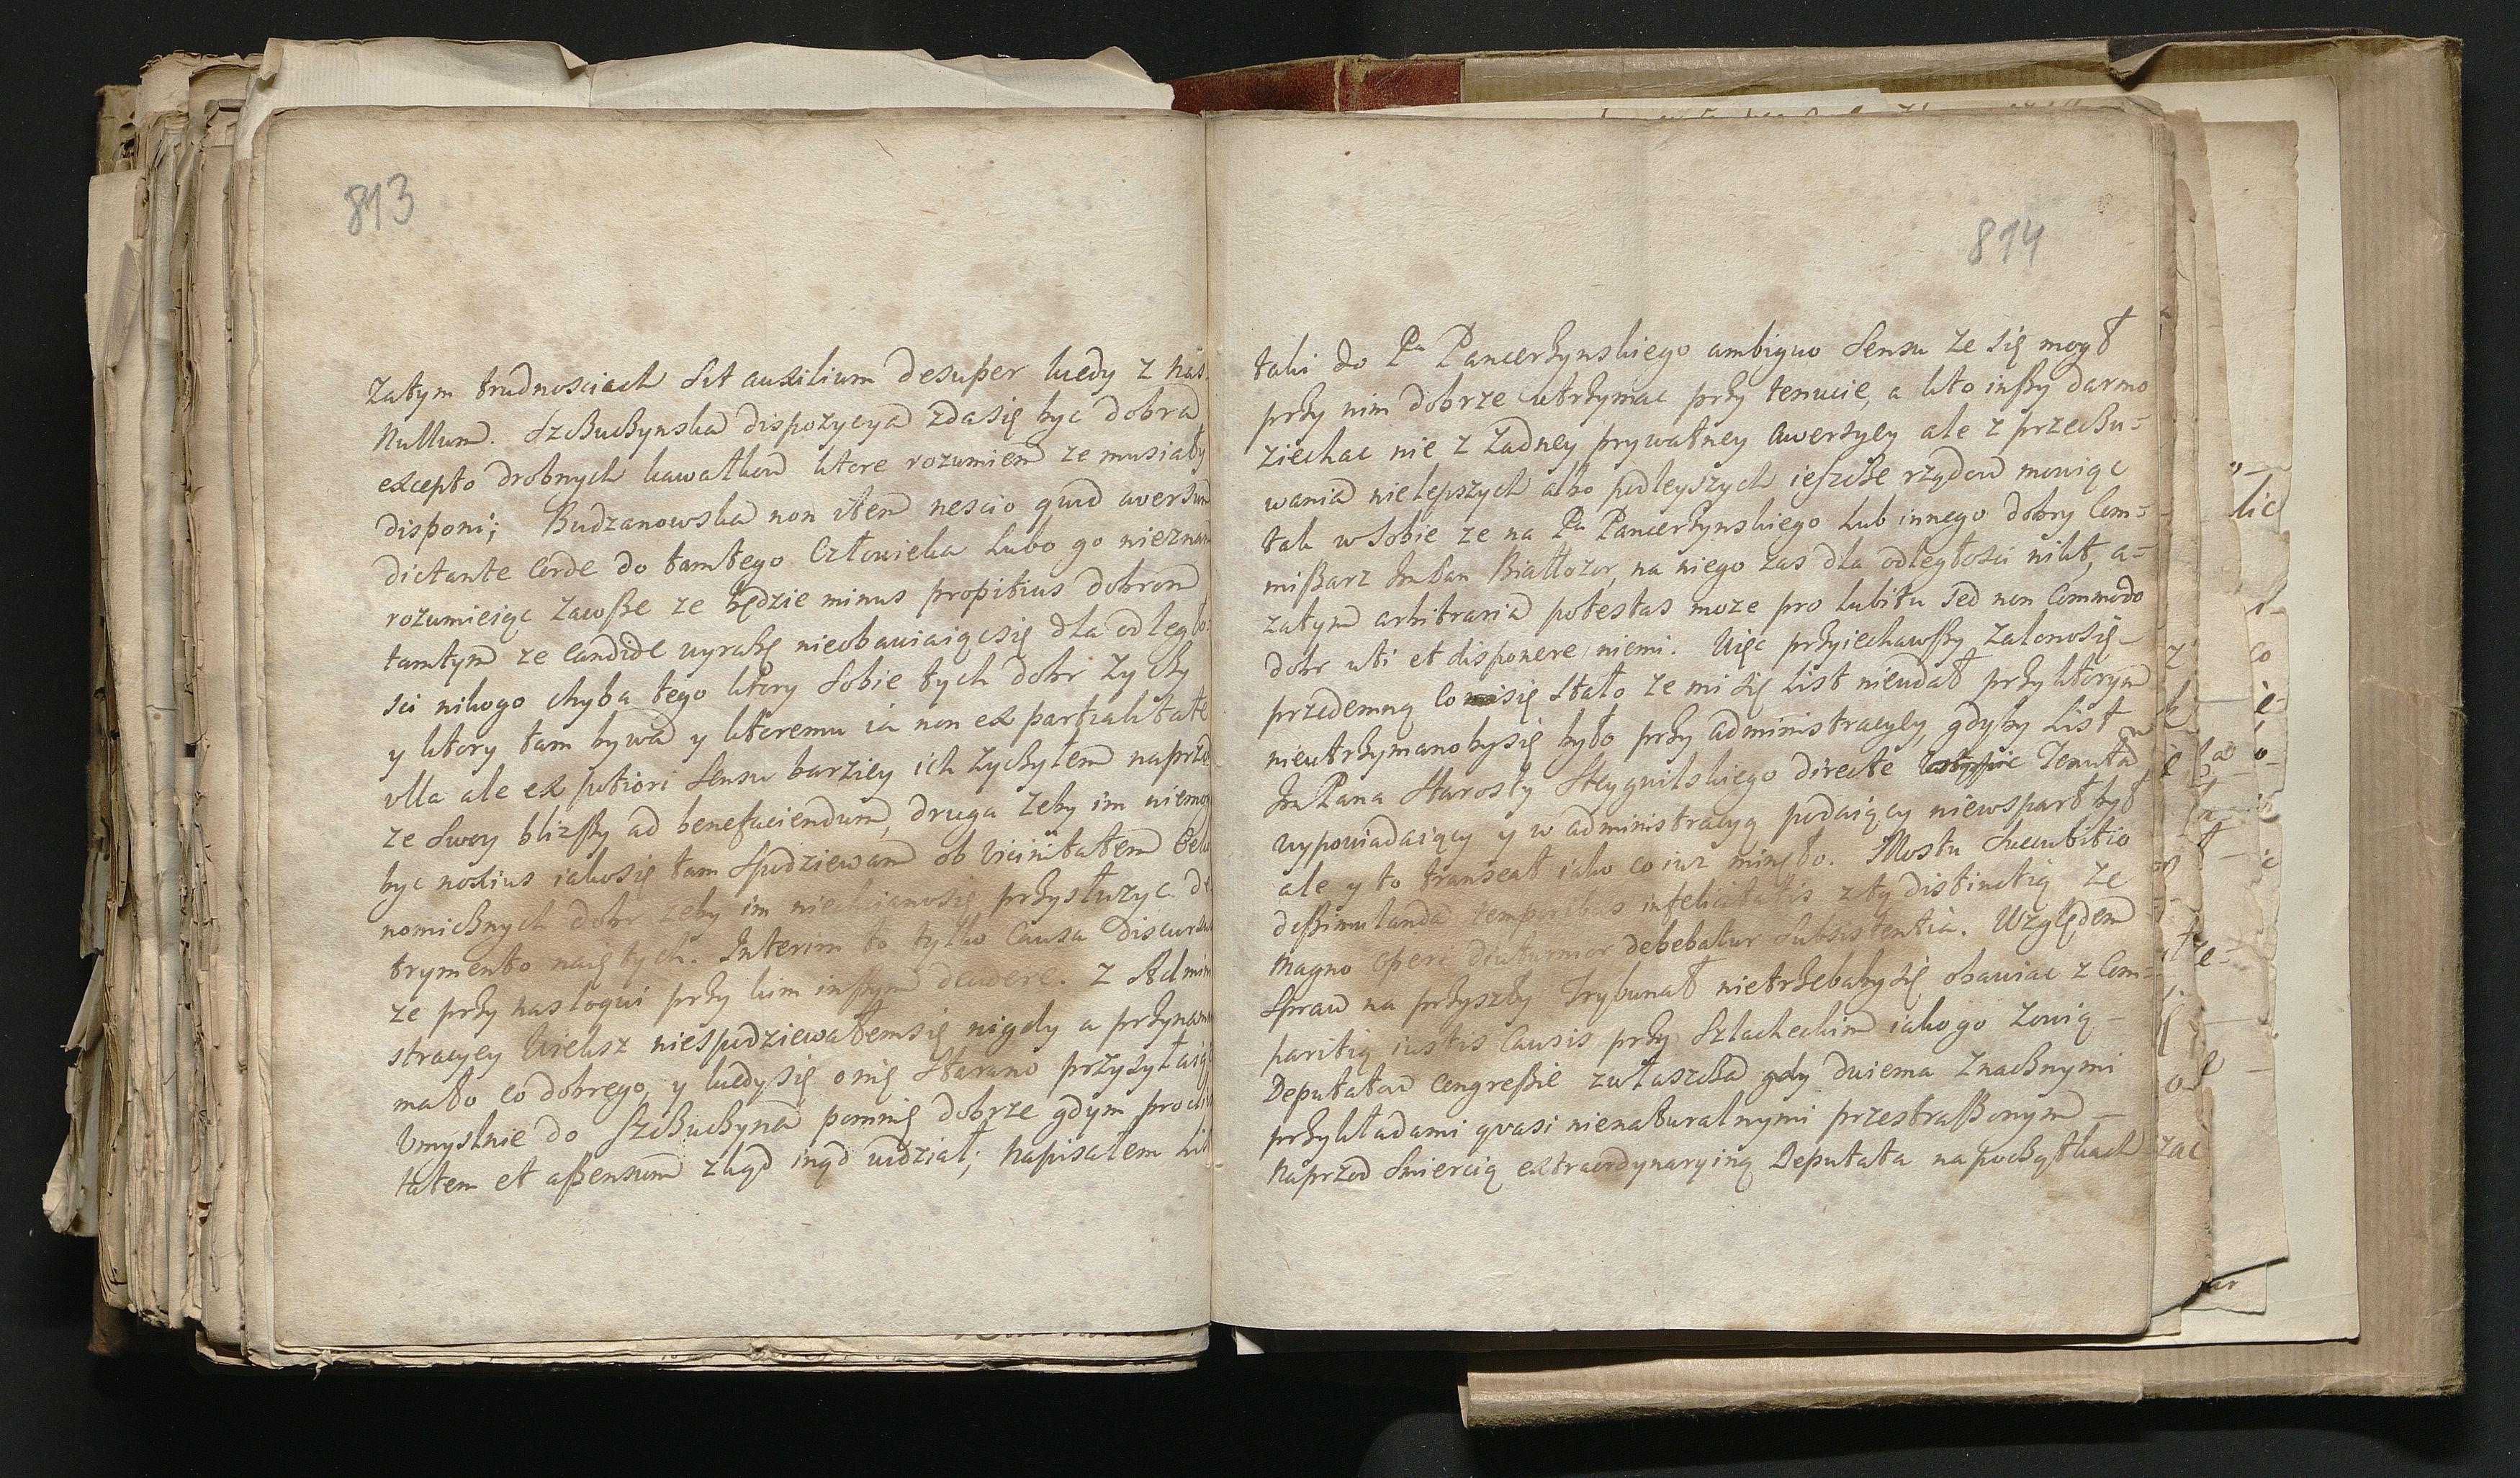 813
Zatym trudnosciach sit auxilium desuper kiedy z nas
Nullum. Szczuczynska dispozycya zdasię byc dobra
excepto drobnych kawałkow ktore rozumiem ze musiały
disponi; Budzanowska non item nescio quid aversum
dictante Corde do tamtego Człowieka Lubo go nieznam
rozumieiąc zawsze ze będzie minus propitius dobrom
tamtym ze Candide wyrażę nieobawiaiącsię dla odległo
sci nikogo chyba tego ktory Sobie tych dobr zyczy
y ktory tam bywa y ktoremu ia non ex partialitate
ulla ale ex potiori Sensu barziey ich zyczyłem naprzod
ze Swoy blizszy ad benefaciendum, druga zeby im niemog
byc noxius iakosię tam Spodziewam ob Vicinitatem
nomicznych dobr zeby im niechcianosię przysłuzyc de
trymento naiętych. Interim to tylko Causa Discursu
ze przy nas loqui przy kim inszym decidere. Z Admini
stracyey Wieksz niespodziewałemsię nigdy a przynaym
mało co dobrego, y kiedysię o nię Starano przysyłaiąc
Umyslnie do Szczuczyna pomnię dobrze gdym
tatem et assensum zkąd inąd widział; napisałem Li
814
taki do Pa Pancerzynskiego ambiguo Sensu ze się mogł
przy nim dobrze utrzymac przy tenucie, a kto inszy darmo
ziechac nie z Zadney prywatney Awersyey ale z przeczu=
wania nielepszych albo podleyszych ieszcze rządow mowiąc
tak w Sobie ze na Pa Pancerzynskiego Lub innego dobry Com=
missarz JmPan Białłozor, na niego zas dla odległosci nikt, a=
zatym arbitraria potestas moze pro Lubitu sed non Commodo
dobr uti et disponere niemi. Więc przyiechawszy
przedemną Co się Stało ze mi się List nieudał przy ktorym
nieutrzymanobysię było przy administracyey, gdyby List
JmPana Starosty Steygwilskiego directe Tenutę
wypowiadaiący y w administracyą podaiący niewsparł był
ale y to transeat iako co iuz minęło. Mostu Succubitio
dissimulanda temporibus infelicitatis z tą distinctią ze
magno operi diuturnior debebatur Subsistentia. Względem
Spraw na przyszły Trybunał nietrzebabysię obawiac z Com=
paritią iustis Causis przy Szlacheckim iakogo Zowią
Deputatow Congressie zwłaszcza gdy dwiema Znacznymi
przykładami quasi nienaturalnymi przestraszonym
Naprzod Smiercią extraordynaryiną Deputata napoczątkach